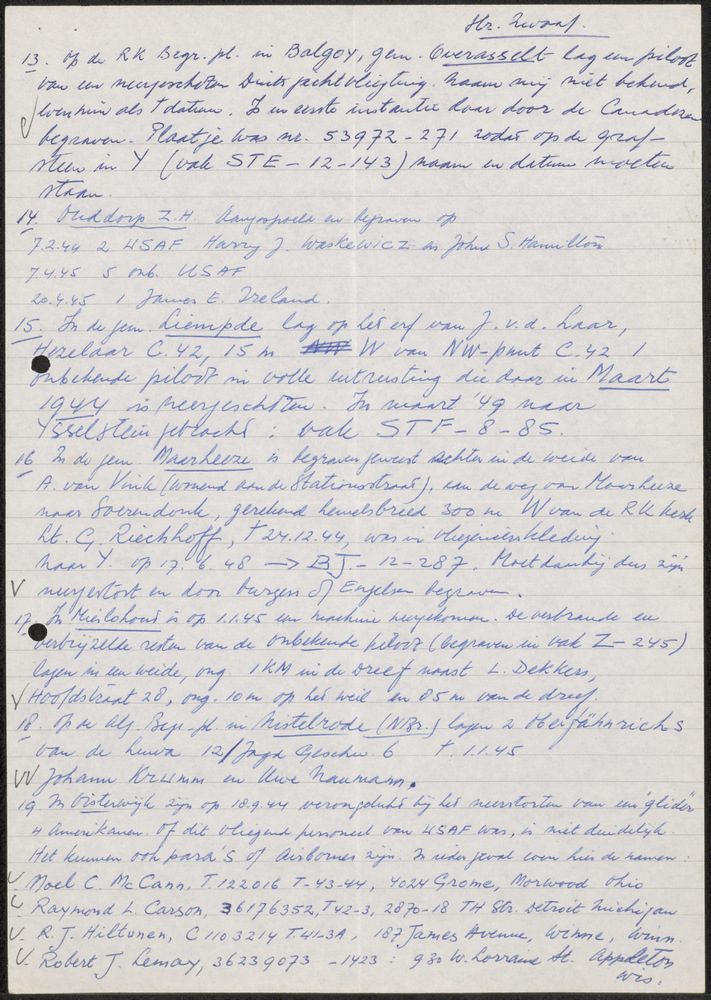 Hr. Zwanf.
13. Op de RK Begr. pl. in Balgoy, gem. Overasselt lag een piloot
van een neergeschoten Duits jachtvliegtuig. Naam mij niet bekend,
evenmin als † datum. Is in eerste instantie daar door de Canadezen
begraven. Plaatje was nr. 53972-271 zodat op de graf-
steen in Y (vak STE-12-143) naam en datum moeten
staan.
14. Ouddorp Z.H. Aangespoeld en begraven op
7.2.44 2 USAF Harry J. Waskewicz en John S. Hamilton
7.4.45 5 onb. USAF
20.4.45 1 James E. Ireland.
15. In de gem. Liempde lag op het erf van J. v.d. Laar,
Hezelaar C.42, 15 m W van NW-punt C.42 1
onbekende piloot in volle uitrusting die daar in Maart
1944 is neergeschoten. In maart '49 naar
Ysselsteyn gebracht: vak STF-8-85.
16 In de gem. Maarheeze is begraven geweest achter in de weide van
A. van Vink (wonend aan de Stationsstraat), aan de weg van Maarheeze
naar Soerendonk, gerekend hemelsbreed 300 m W van de RK kerk
Lt. G. Riechhoff, † 24.12.44, was in vliegenierskleding.
Naar Y. op 17.6.48 → BJ-12-287. Moet daarbij dus zijn
V neergestort en door burgers of Engelsen begraven.
17. In Mierlohout is op 1.1.45 een machine neergekomen. De verbrande en
verbrijzelde resten van de onbekende piloot (begraven in vak Z-245)
lagen in een weide, ong. 1 KM in de dreef naast L. Dekkers,
V Hoofdstraat 28, ong. 10 m op het weil en 85 m van de dreef.
18. Op de Alg. Begr. pl. in Nistelrode (NBr.) lagen 2 Oberfähnrichs
van de Luwa 12/Jagd Geschw 6 †. 1.1.45
VV Johann Krumm en Uwe Naumann.
19. In Oisterwijk zijn op 18.9.44 verongelukt bij het neerstorten van een "glider"
4 Amerikanen. Of dit vliegend personeel van USAF was, is niet duidelijk.
Het kunnen ook para's of Airbornes zijn. In ieder geval even hier de namen:
V Noel C. McCann, T.122016 T-43-44, 4024 Grome, Morwood Ohio
V Raymond L. Carson, 36176352, T42-3, 2870-18 TH Str. Detroit Michigan
V. R.J. Hiltunen, C 1103214 T.41-3A, 187 James Avenue, Winne, Winn.
V. Robert J. Lemay, 36239073 -1423: 930 W. Lorraine St. Appleton
Wis.